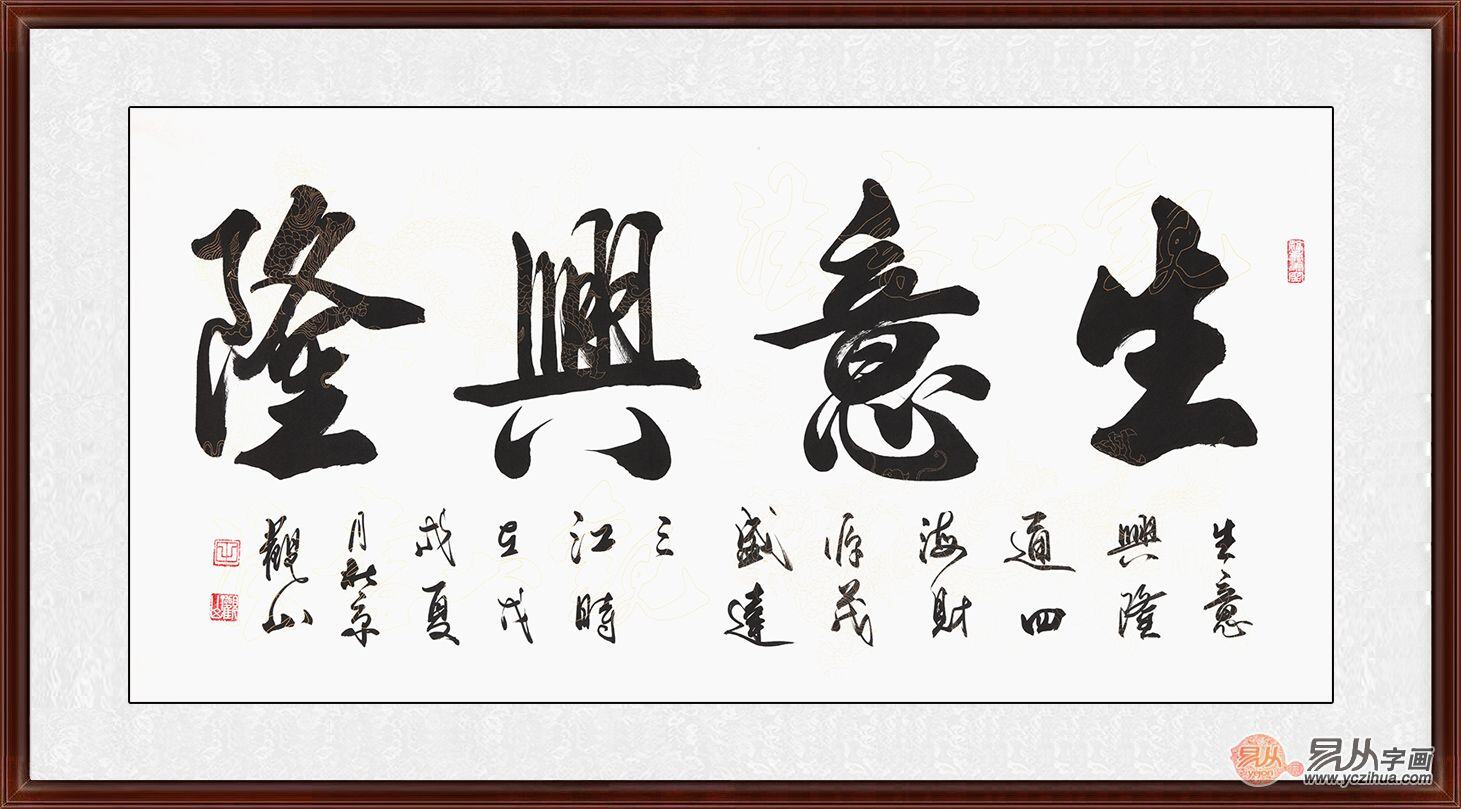 生意興隆
生意
興隆
通四
海財
源茂
盛達
三
江時
在戊
戌夏
月於京
觀山
易从
易从字画
www.yczihua.com